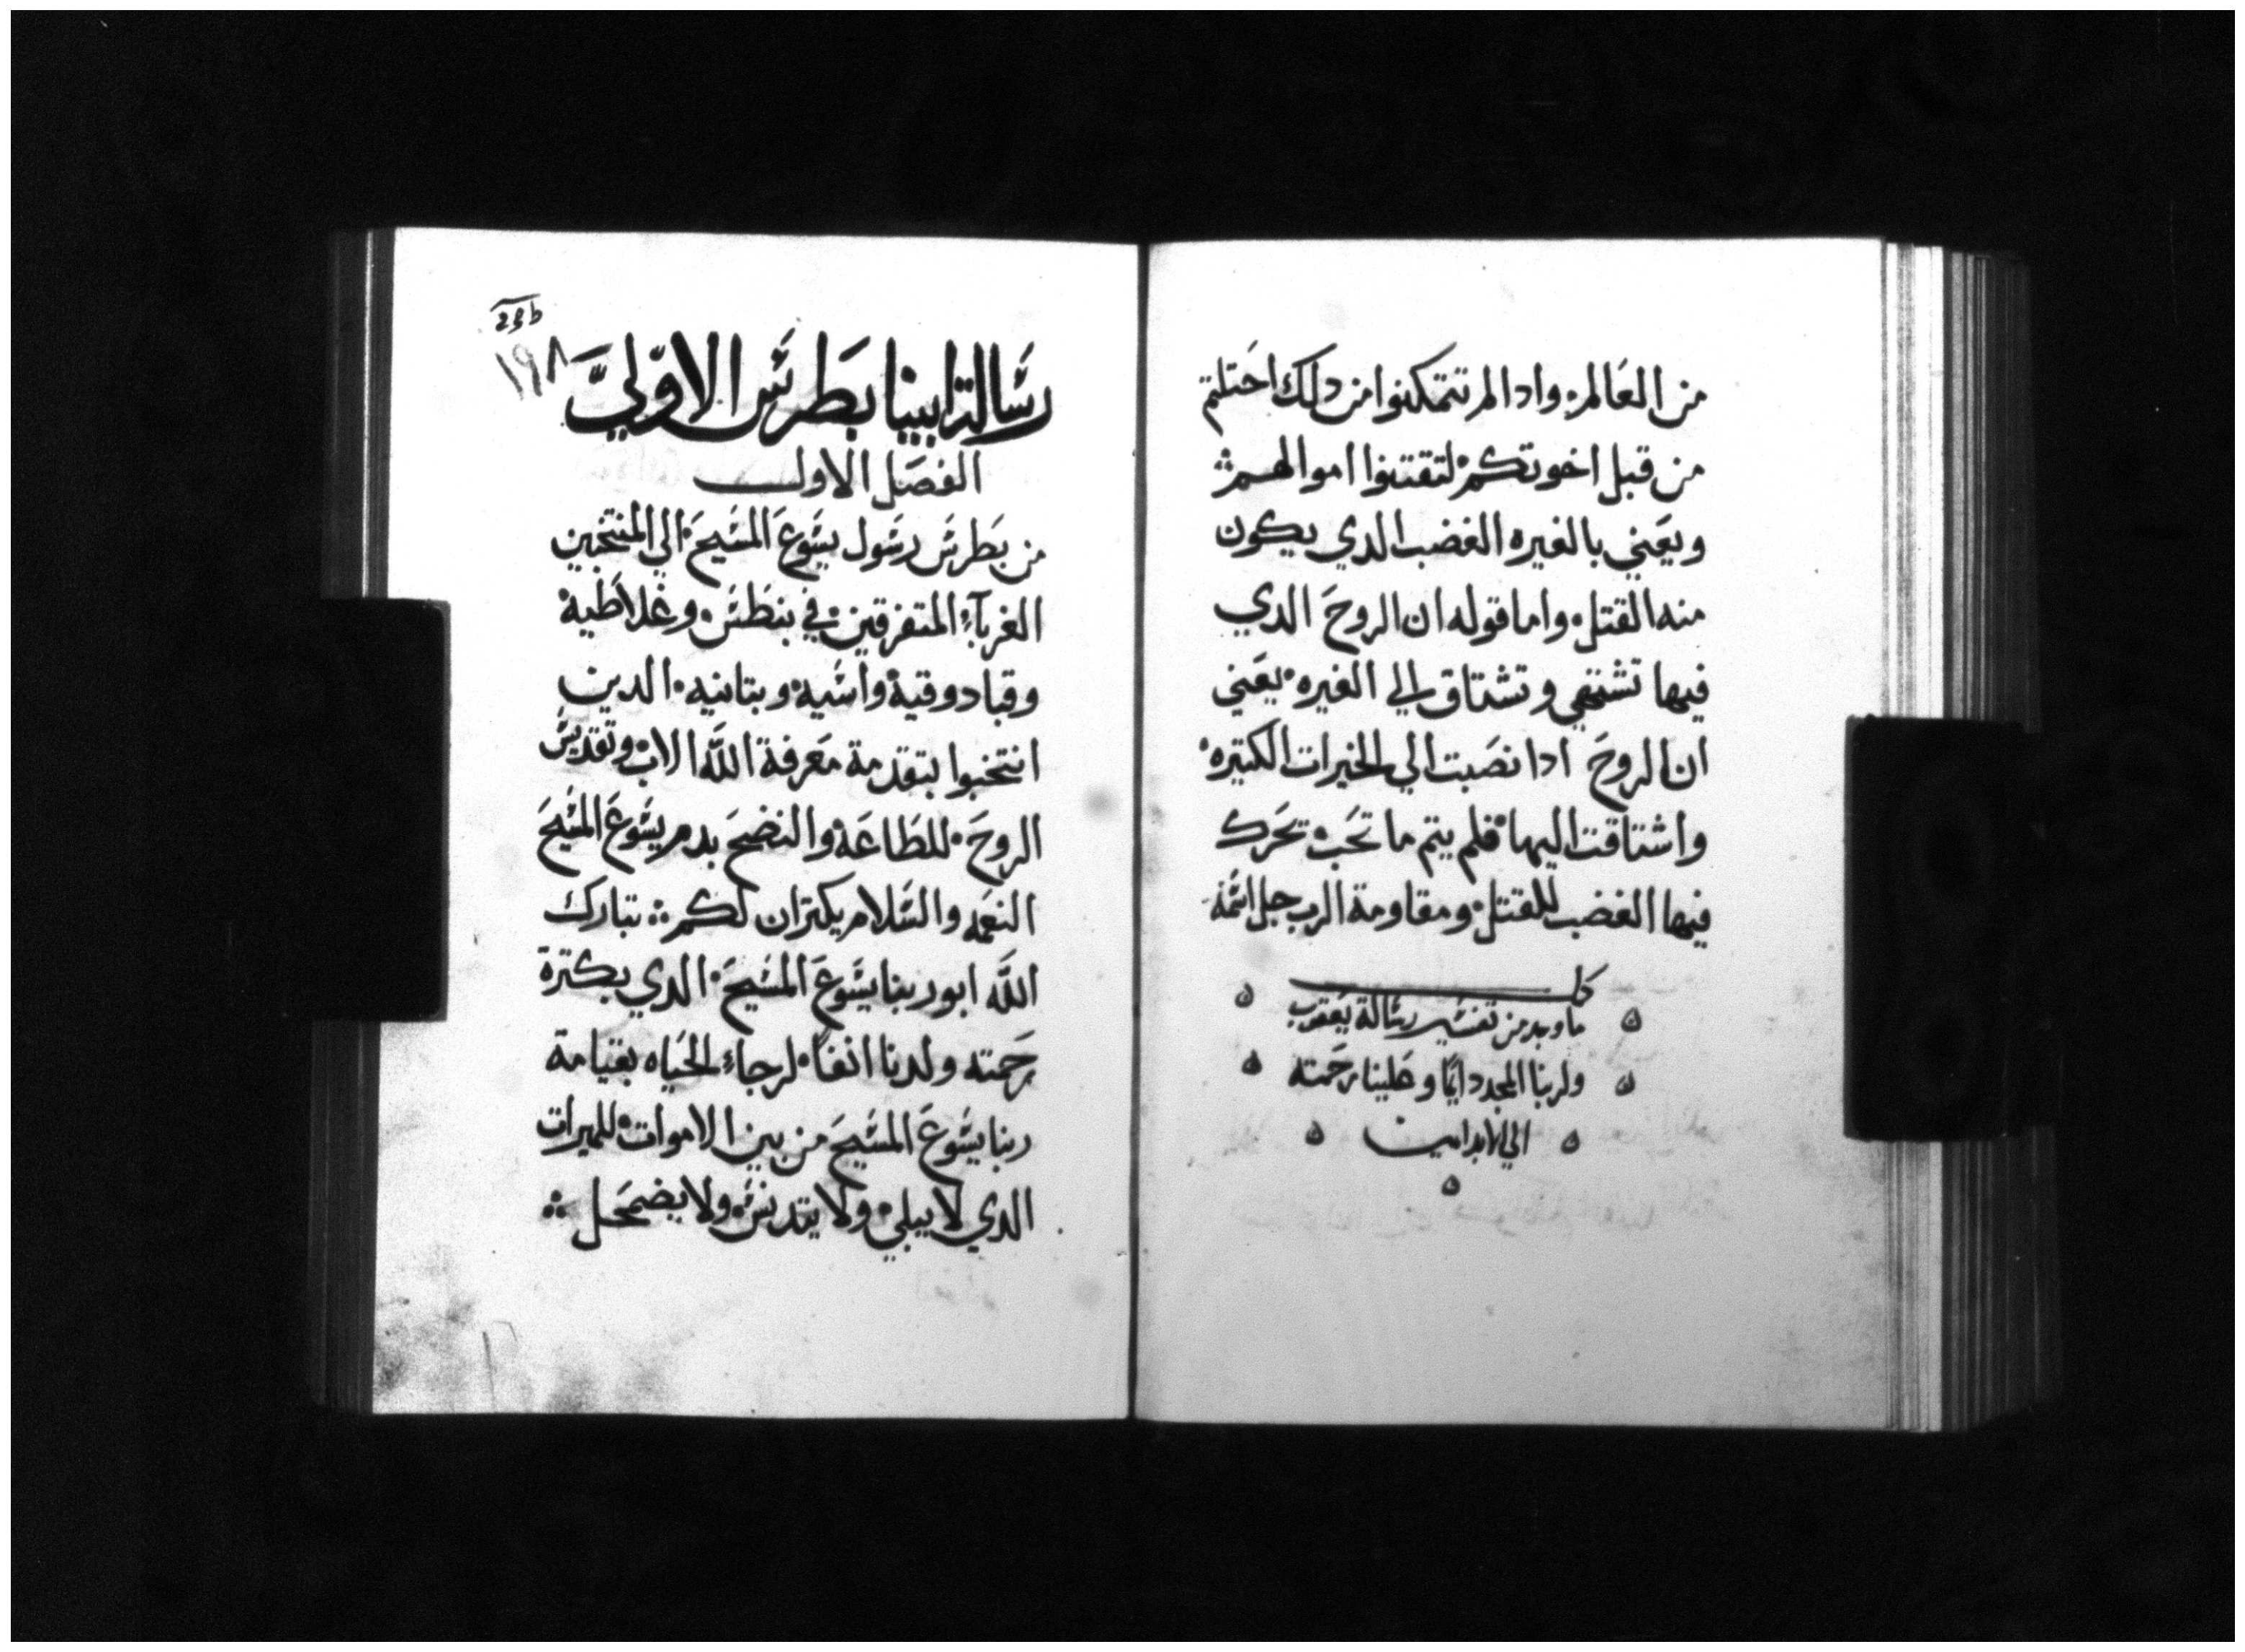 من العالم. واد المر تتمكنوا من دلك احتلتم
من قبل اخوتكم لتقتنوا اموالهم
ويعني بالغيره الغضب الدي يكون
منه القتل. واما قوله ان الروح الدي
فيها تشتهي وتشتاق الي الغيره. يعني
ان الروح ادا نصبت الي الخيرات الكتيره
واشتاقت اليها فلم يتم ما تحب تحرك
فيها الغضب للقتل. ومقاومة الرب جل اسمه
كمل
ما وجد من تفسير رسالة يعقوب
ولربنا المجد دايما وعلينا رحمته
الي الابد امين
23b
١٩٨
رسالة ابينا بطرس الاولي
الفصل الاول
من بطرس رسول يسوع المسيح. الي المنتخبين
الغرباء المتفرقين. في بنطس. وغلاطية
وقبادوقية واسية وبتانيه. الدين
انتخبوا بتقدمة معرفة الله الاب وتقديس
الروح. للطاعة والنضح بدم يسوع المسيح
النعمه والسلام يكتران لكم ⁘ تبارك
الله ابو ربنا يسوع المسيح. الدي بكترة
رحمته ولدنا انفا لرجاء الحياه بقيامة
ربنا يسوع المسيح من بين الاموات للميرات
الدي لا يبلي ولا يتدنس ولا يضمحل ⁘